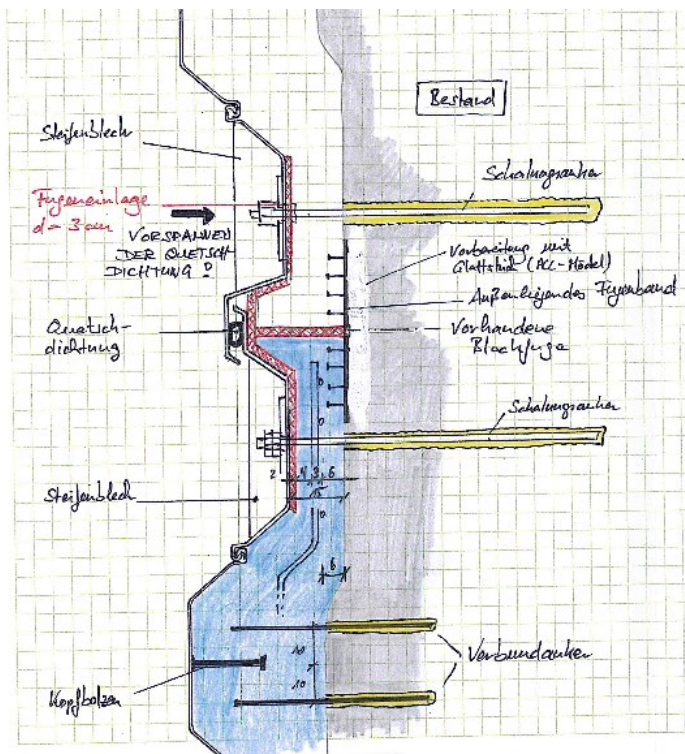 Bestand
Steifenblech
Schalungsanker
Fugeneinlage
d = 3 cm
VORSPANNEN
DER QUETSCH
DICHTUNG !
Vorbereitung mit
Glattstrich (PCC-Mörtel)
Außenliegendes Fugenband
Quetsch-
dichtung
Vorhandene
Blockfuge
Schalungsanker
2 4 3 6
15
Steifenblech
6
10
10
Verbundanker
Kopfbolzen